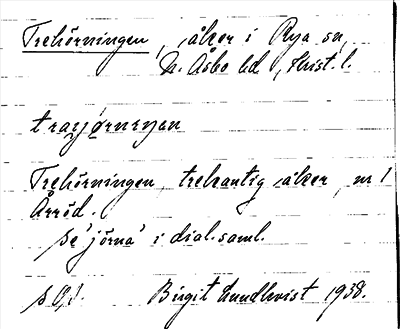 Trehörningen, åker i Rya sn,
N. Åsbo hd, Krist. l.
Trehörningen, trekantig åker, nr 1
Årröd.
se 'jörna' i dial.saml.
Birgit Lundkvist 1938.